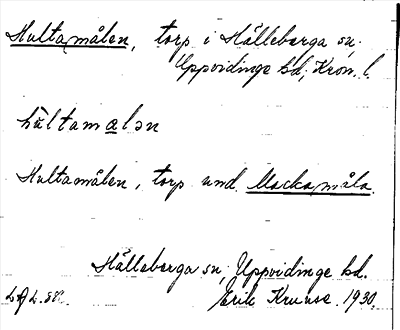 Hultamålen, torp i Hälleberga sn,
Uppvidinge hd, Kron. l.
hùltamælən
Hultamålen, torp und. Mackamåla.
Hälleberga sn, Uppvidinge hd.
Erik Kruuse. 1930.